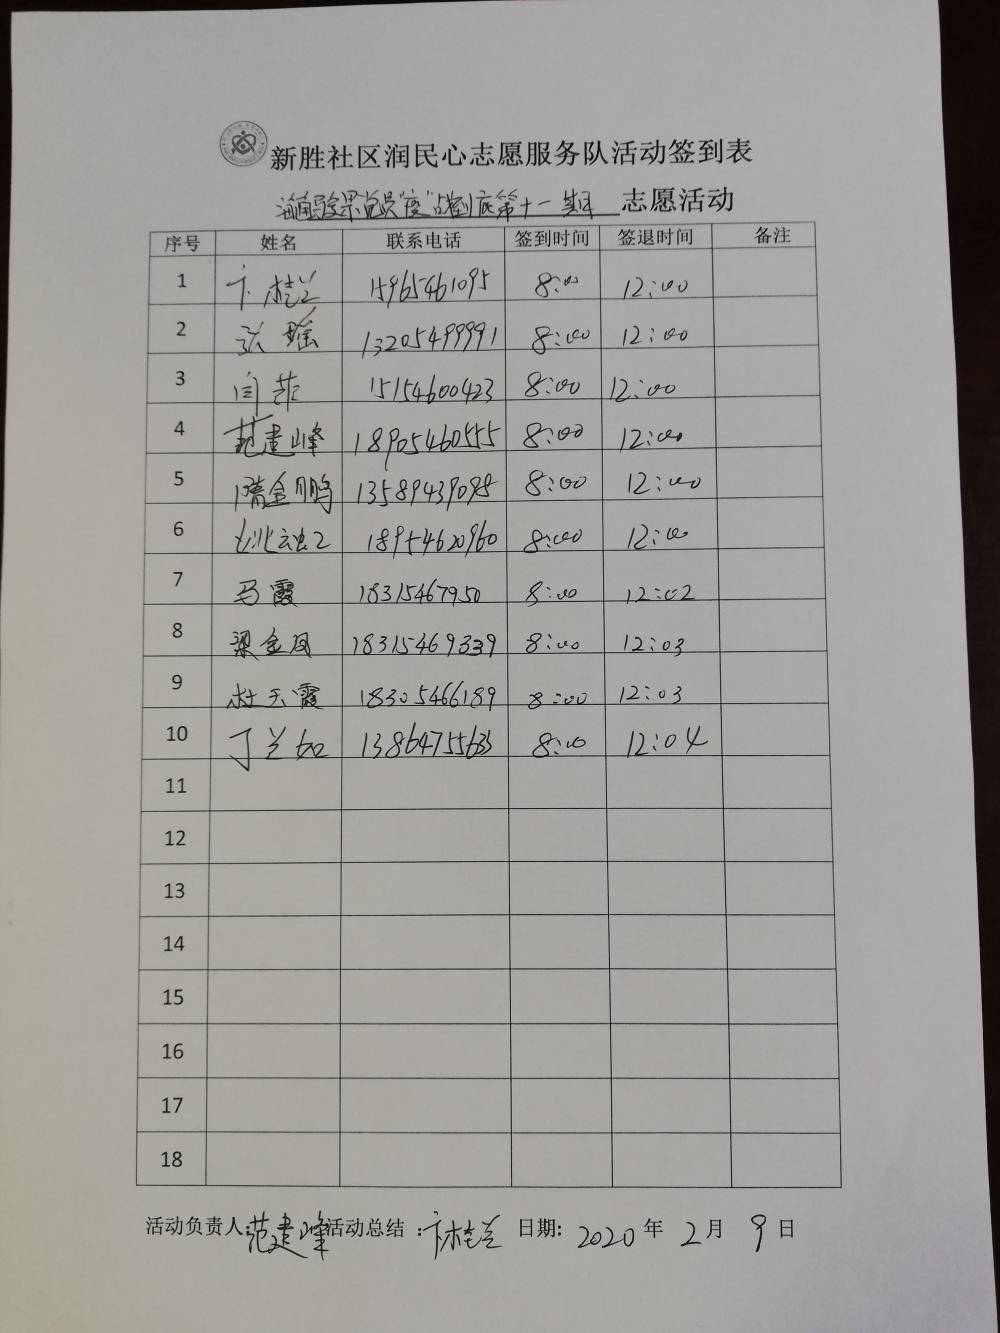 新胜社区润民心志愿服务队活动签到表
党员"疫"战到底第十一期 志愿活动
序号 姓名 联系电话 签到时间 签退时间 备注
1 卞桂兰 15965461095 8:00 12:00
2 张瑶 13205499991 8:00 12:00
3 闫菲 15154600423 8:00 12:00
4 范建峰 18905460555 8:00 12:00
5 隋金鹏 13589439098 8:00 12:00
6 18954620960 8:00 12:00
7 马霞 18315467950 8:00 12:02
8 梁金凤 18315469339 8:00 12:03
9 杜天霞 18305466189 8:00 12:03
10 丁兰如 13864755633 8:00 12:04
11
12
13
14
15
16
17
18
活动负责人:范建峰 活动总结:卞桂兰 日期: 2020 年 2 月 9 日